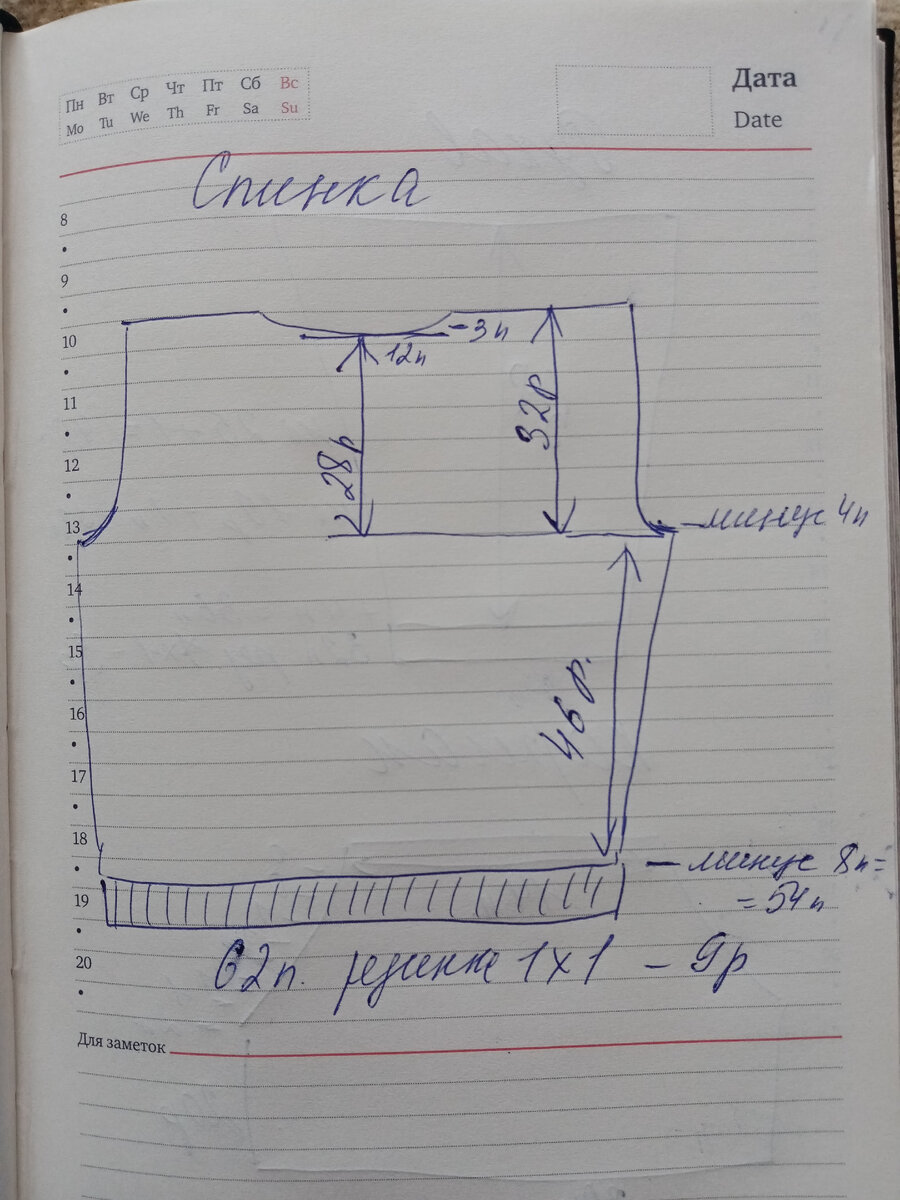 Пн Вт Ср Чт Пт Сб Вс
Mo Tu We Th Fr Sa Su
Дата
Date
Спинка
8
9
10
11
12
13
14
15
16
17
18
19
20
- 3п
12п
28р
32р
- минус 4п
46р.
- минус 8п =
= 54п
62п. резинка 1х1 - 9р
Для заметок